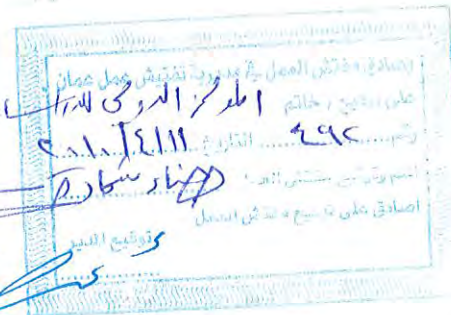 يصادق مفتش العمل في مديرية تفتيش عمل عمان
على توقيع / خاتم المركز الدولي للدراسات
رقم ٤٩٢ التاريخ ٢٠١٠/٤/١١
اسم وتوقيع مفتش العمل
اصادق على توقيع مفتش العمل
توقيع المدير